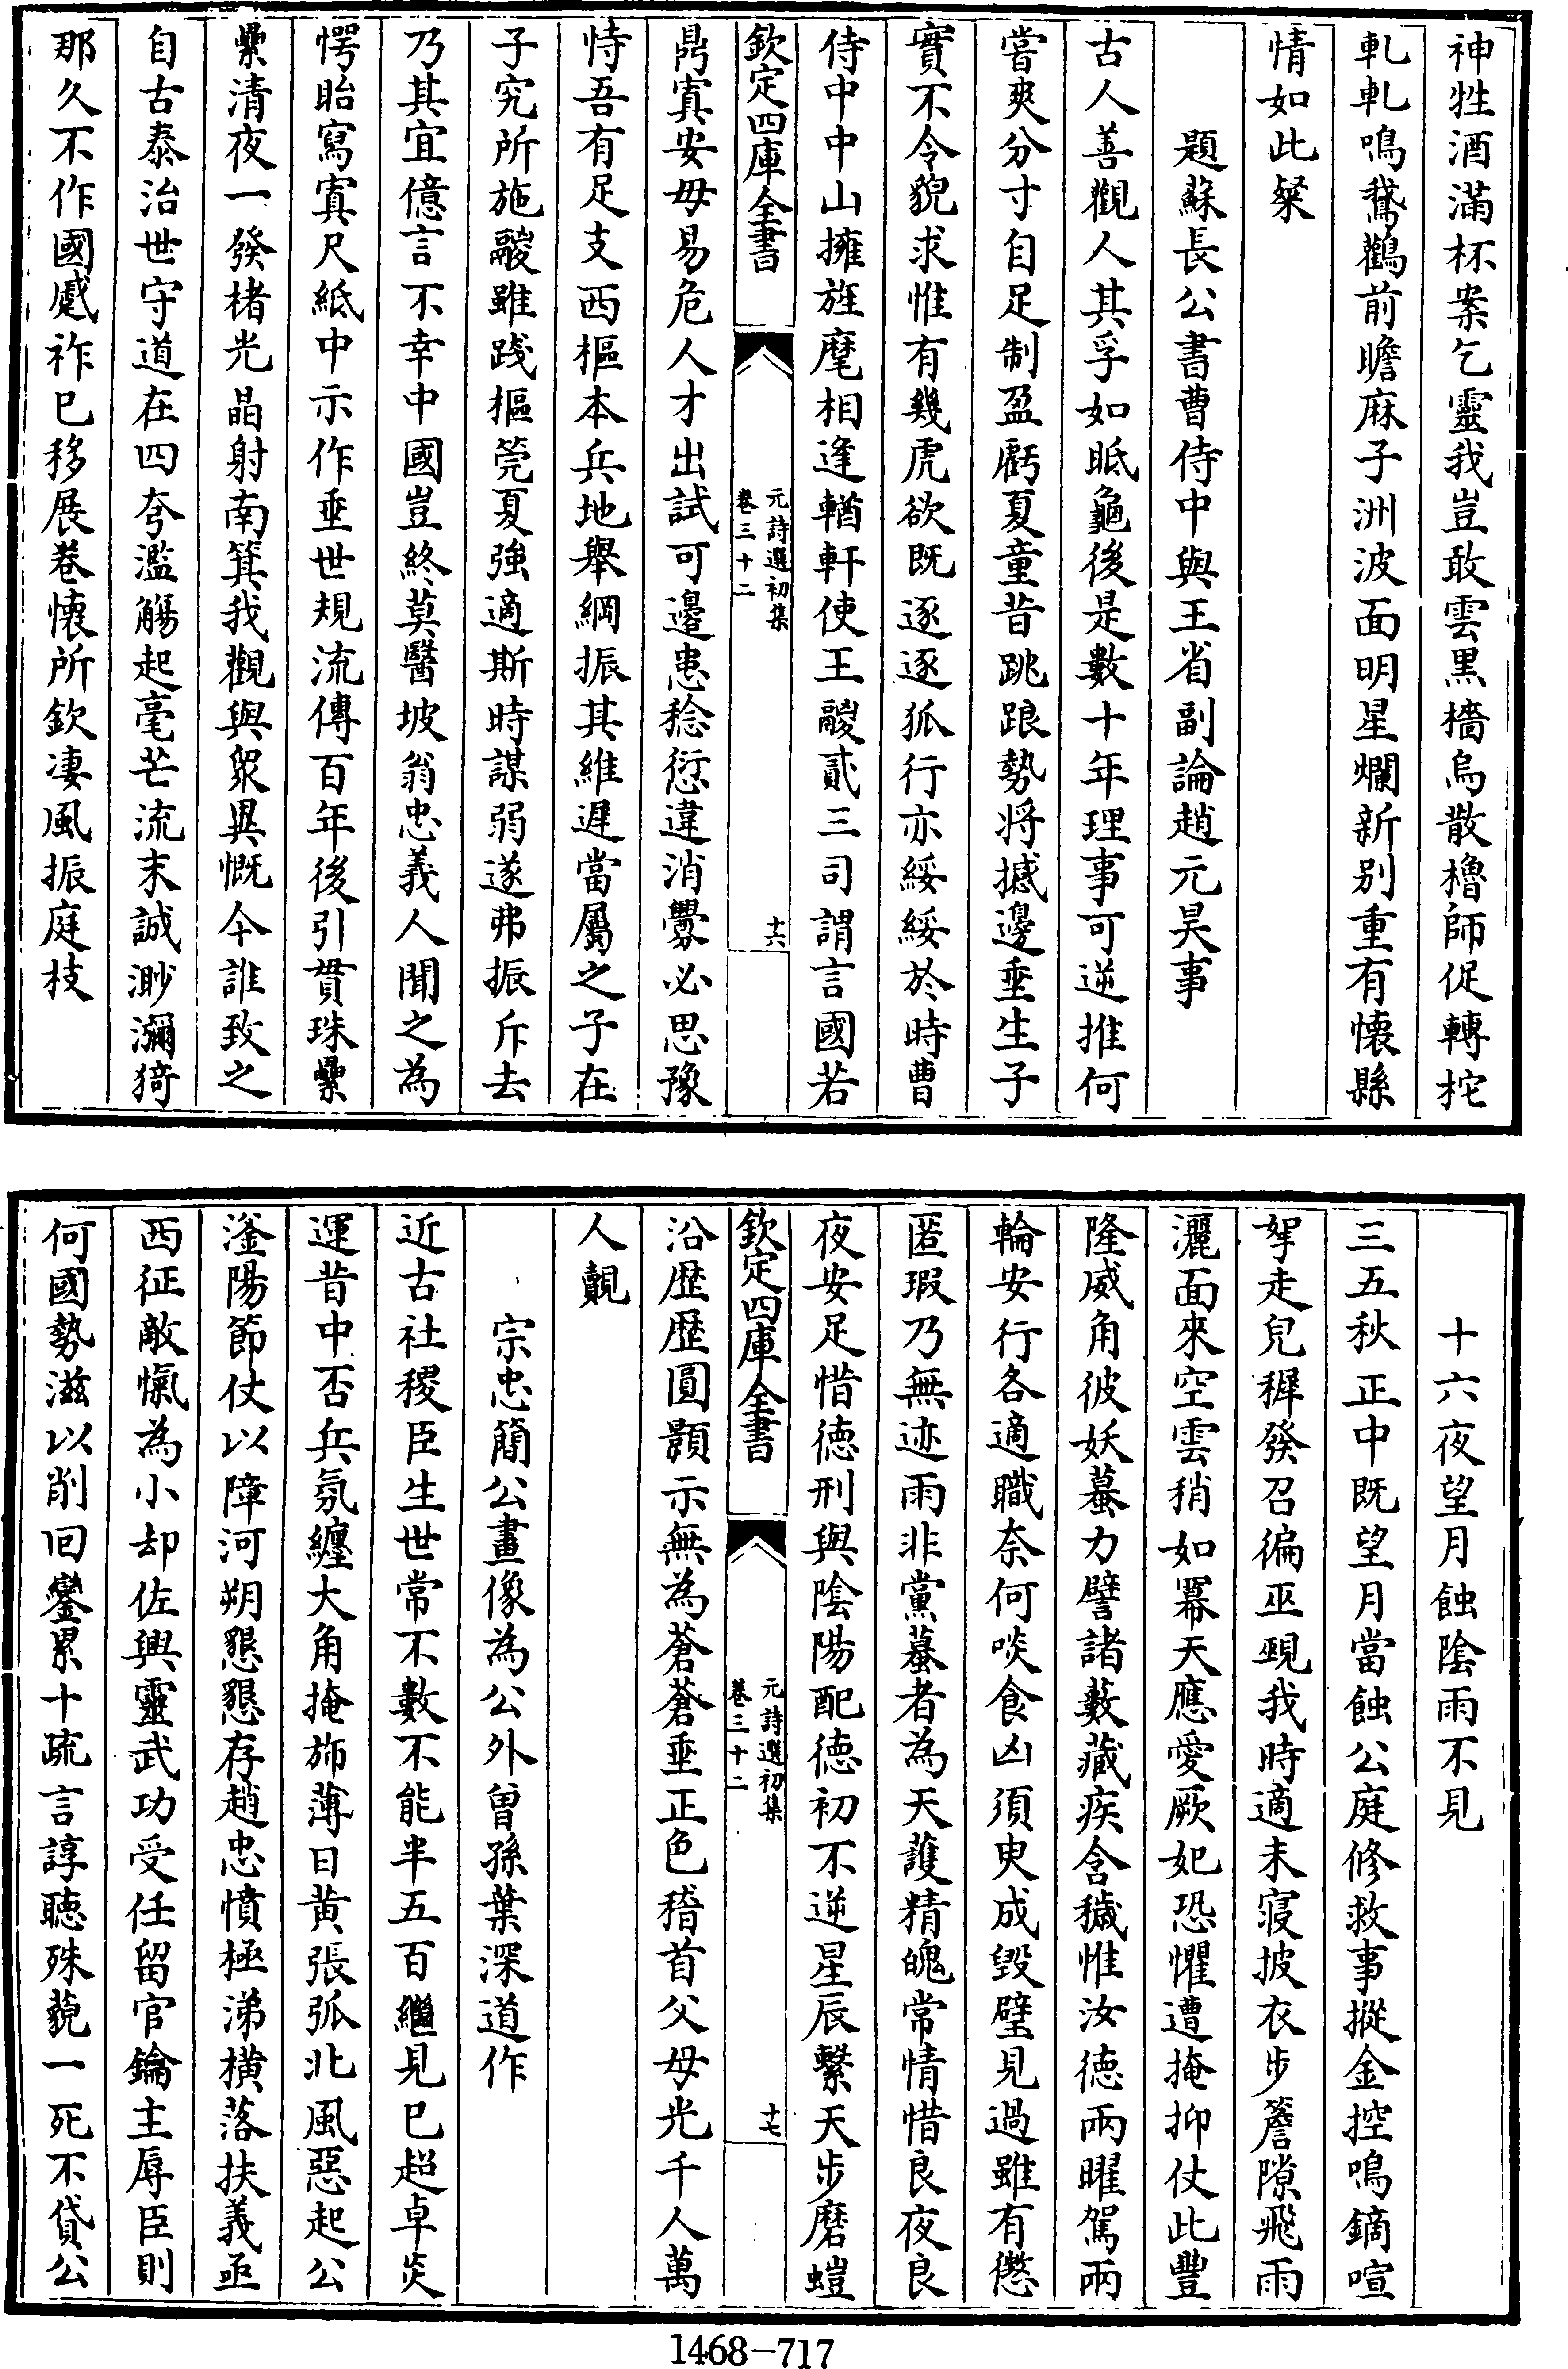 神牲酒滿杯案乞靈我豈敢雲黒檣烏散櫓師促轉柁
軋軋鳴鵞鸛前瞻麻子洲波面明星爛新别重有懐縣
情如此粲
題蘇長公書曹侍中與王省副論趙元昊事
古人善觀人其孚如眡龜後是數十年理事可逆推何
嘗爽分寸自足制盈虧夏童昔跳踉勢将撼邊垂生子
實不令貌求惟有幾虎欲既逐逐狐行亦綏綏於時曹
侍中中山擁旌麾相逢輶軒使王鬷貳三司謂言國若
欽定四庫全書
元詩選初集
卷三十二
十六
鼎寘安毋易危人才出試可邊患稔愆違消釁必思豫
恃吾有足支西樞本兵地舉綱振其維遲當屬之子在
子究所施鬷雖踐樞筦夏強適斯時謀弱遂弗振斥去
乃其宜億言不幸中國豈終莫醫坡翁忠義人聞之為
愕眙寫寘尺紙中示作垂世規流傳百年後引貫珠纍
纍清夜一發楮光晶射南箕我觀與衆異慨今誰致之
自古泰治世守道在四夸濫觴起毫芒流末誠渺瀰猗
那久不作國蹙祚已移展巻懐所欽凄風振庭枝
十六夜望月蝕陰雨不見
三五秋正中既望月當蝕公庭修救事摐金控鳴鏑喧
拏走兒穉發召徧巫覡我時適未寝披衣步簷隙飛雨
灑面來空雲稍如冪天應愛厥妃恐懼遭掩抑仗此豐
隆威角彼妖蟇力譬諸藪藏疾含穢惟汝徳兩曜駕兩
輪安行各適職奈何啖食凶須臾成毀璧見過雖有懲
匿瑕乃無迹雨非黨蟇者為天護精魄常情惜良夜良
夜安足惜徳刑與陰陽配徳初不逆星辰繫天步磨螘
欽定四庫全書
元詩選初集
卷三十二
十七
沿歴歴圓顥示無為蒼蒼垂正色稽首父母光千人萬
人覿
宗忠簡公畫像為公外曾孫葉深道作
近古社稷臣生世常不數不能半五百繼見已超卓炎
運昔中否兵氛纏大角掩斾薄日黄張弧北風惡起公
滏陽節仗以障河朔懇懇存趙忠憤極涕横落扶義亟
西征敵愾為小却佐興靈武功受任留官鑰主辱臣則
何國勢滋以削回鑾累十疏言諄聴殊藐一死不貸公
1468-717